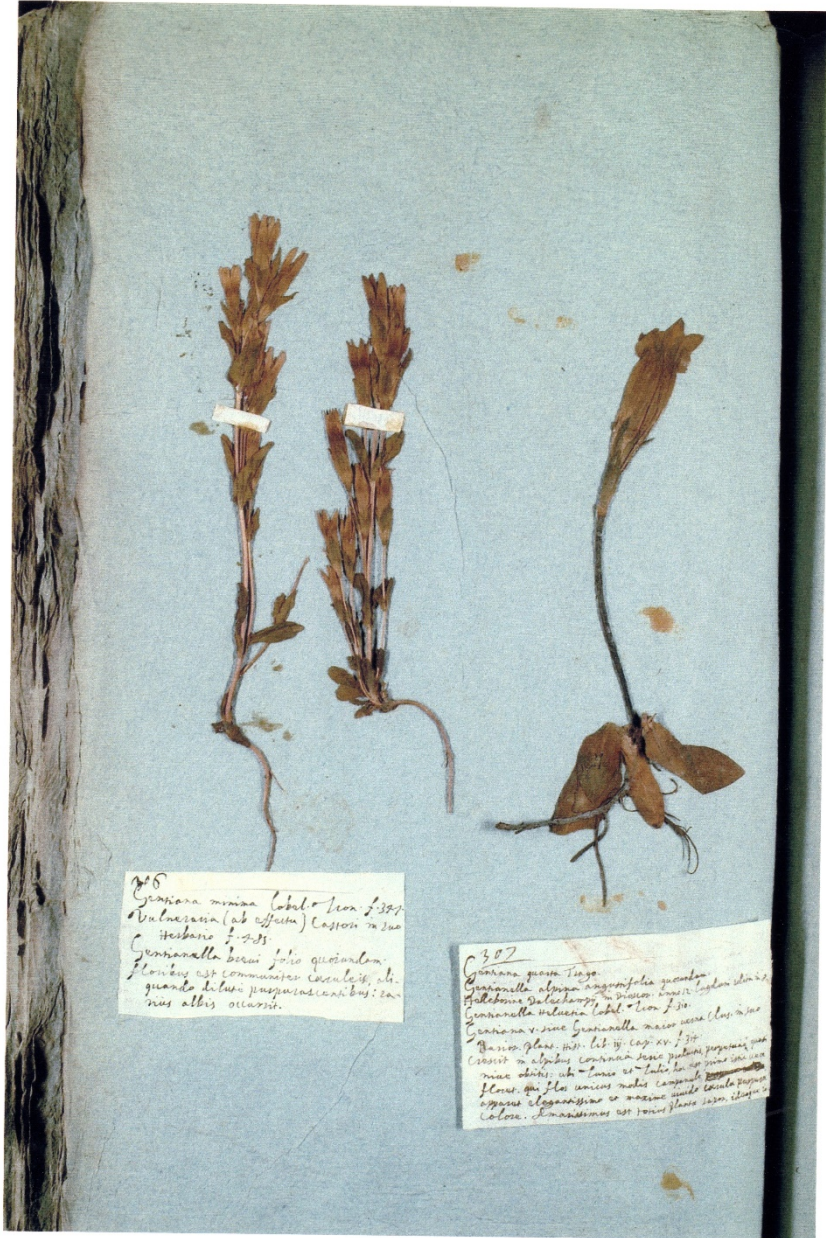 306
Gentiana minima Lobel. Icon. f.
Vulneraria (ab effectu) Castori in suo
Herbario f. 485.
Gentianella brevi folio quorundam
floribus est communiter coeruleis, ali-
quando dilute purpurascentibus: ra-
rius albis occurrit.
307
Gentiana quarta Trago.
Gentianella alpina angustifolia quorundam
Helleborine Dalechampij, in
Gentianella Helvetica Lobel. Icon. f. 310.
Gentiana v. sive Gentianella maior verna Clus. in suo
Rarior. Plant. Hist. lib. iij. cap. xv. f. 314
Crescit in alpibus continua serie
nive obsitis: ubi Iunio et Iulio
floret. qui flos unicus modis
apparet elegantissimo et maxime vivido coerula purpura
colore. Amarissimus est totius planta sapor,